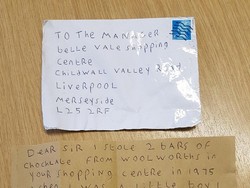 TO THE MANAGER
belle VALE Shopping
CENTRE
CHILDWALL VALLEY ROAD
LIVERPOOL
MERSEYSIDE
L25 2RF
DEAR SIR I STOLE 2 BARS OF
CHOCHLATE FROM WOOLWORTHS IN
YOUR SHOPPING CENTRE IN 1975
when I WAS A LITTLE BOY